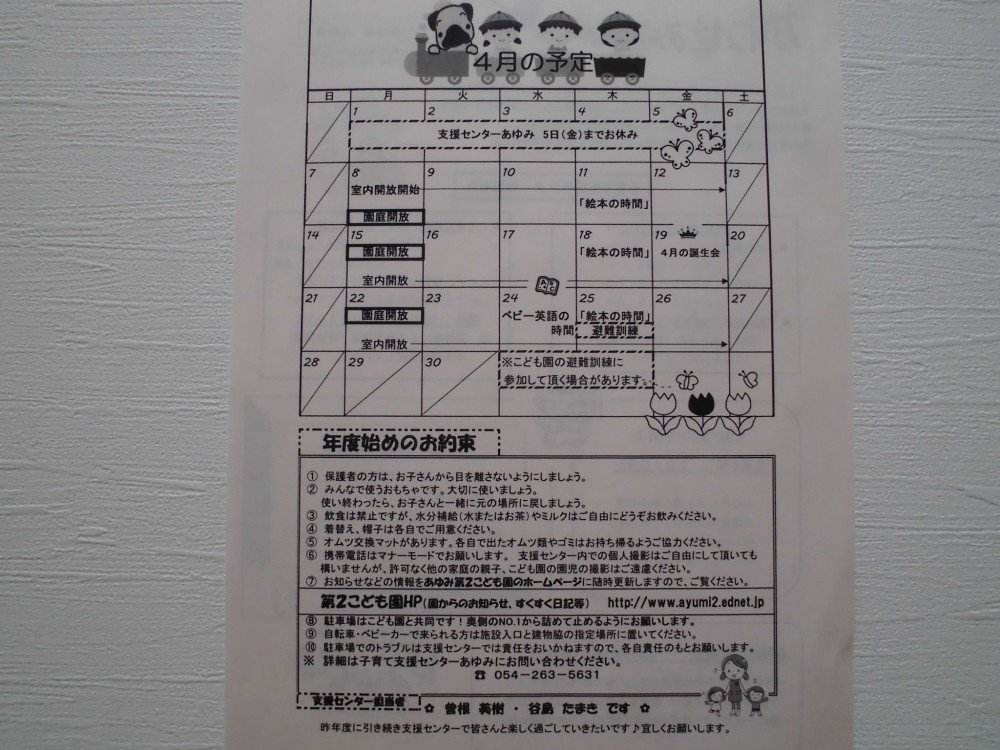 4月の予定
日 月 火 水 木 金 土
1 2 3 4 5 6
支援センターあゆみ 5日(金)までお休み
7 8 9 10 11 12 13
室内開放開始
「絵本の時間」
園庭開放
14 15 16 17 18 19 20
園庭開放 「絵本の時間」 4月の誕生会
室内開放
21 22 23 24 25 26 27
園庭開放 ベビー英語の 「絵本の時間」
時間 避難訓練
室内開放
28 29 30 ※こども園の避難訓練に
参加して頂く場合があります。
年度始めのお約束
① 保護者の方は、お子さんから目を離さないようにしましょう。
② みんなで使うおもちゃです。大切に使いましょう。
使い終わったら、お子さんと一緒に元の場所に戻しましょう。
③ 飲食は禁止ですが、水分補給(水またはお茶)やミルクはご自由にどうぞお飲みください。
④ 着替え、帽子は各自でご用意ください。
⑤ オムツ交換マットがあります。各自で出たオムツ類やゴミはお持ち帰るようご協力ください。
⑥ 携帯電話はマナーモードでお願いします。 支援センター内での個人撮影はご自由にして頂いても
構いませんが、許可なく他の家庭の親子、こども園の園児の撮影はご遠慮ください。
⑦ お知らせなどの情報をあゆみ第2こども園のホームページに随時更新しますので、ご覧ください。
第2こども園HP(園からのお知らせ、すくすく日記等) http://www.ayumi2.ednet.jp
⑧ 駐車場はこども園と共同です!奥側のNO.1から詰めて止めるようにお願いします。
⑨ 自転車・ベビーカーで来られる方は施設入口と建物脇の指定場所に置いてください。
⑩ 駐車場でのトラブルは支援センターでは責任をおいかねますので、各自責任のもとお願いします。
※ 詳細は子育て支援センターあゆみにお問い合わせください。
☎ 054-263-5631
支援センター担当者
✿ 曽根 英樹 ・ 谷島 たまき です ✿
昨年度に引き続き支援センターで皆さんと楽しく過ごしていきたいです♪宜しくお願いします。